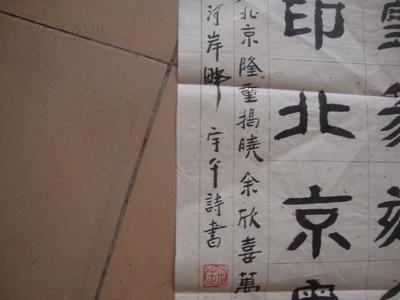 篆刻
印北京奧
北京隆重揭曉余欣喜萬
河岸畔 宇平詩書